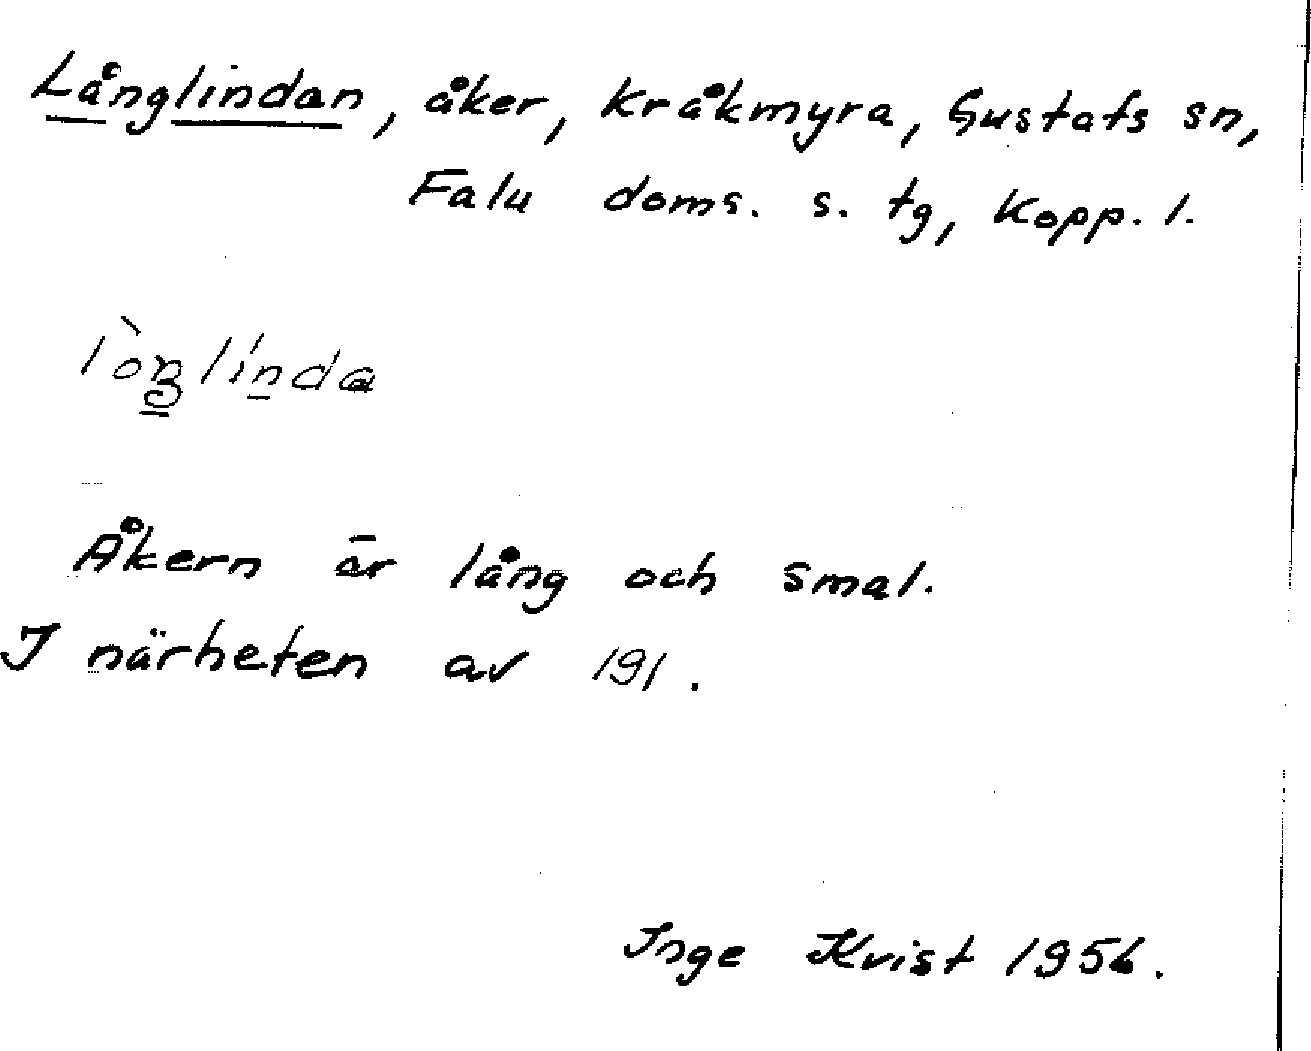 Långlindan, åker, Kråkmyra, Gustafs sn,
Falu doms. s. tg, Kopp. l.
lòŋlínda
Åkern är lång och smal.
I närheten av 191.
Inge Kvist 1956.